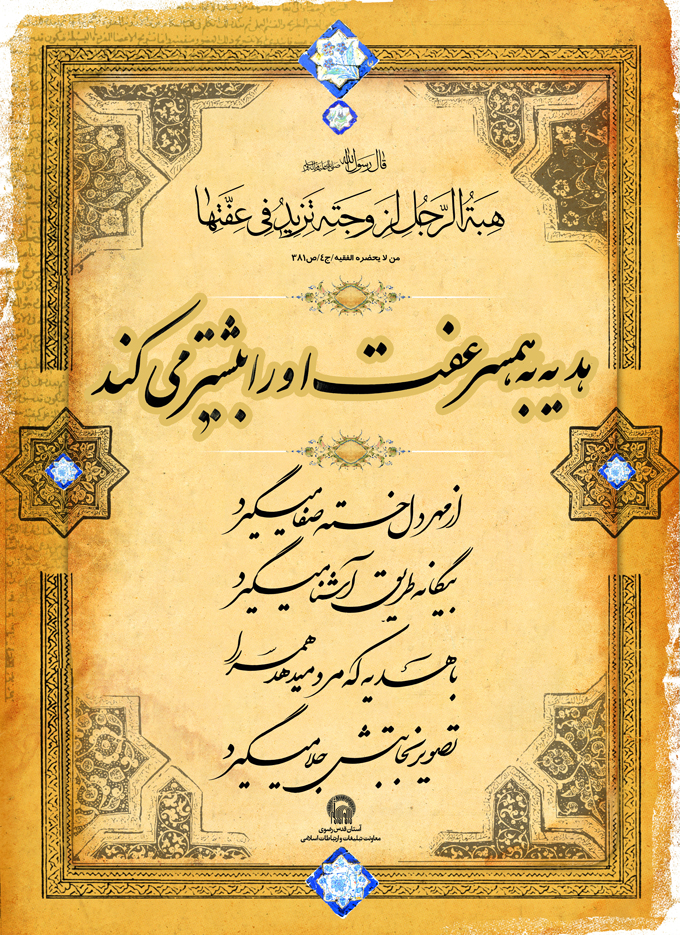 قال رسول الله صلی الله علیه و آله
هِبَةُ الرَّجُلِ لِزَوجَتِهِ تَزِيدُ فی عِفَّتِها
من لا یحضره الفقیه/ج٤/ص۳۸۱
هدیه به همسر عفت او را بیشتر می کند
از مهر دل خسته صفا میگیرد
بیگانه طریق آشنا میگیرد
با هدیه که مرد میدهد همسر را
تصویر نجابتش جلا میگیرد
آستان قدس رضوی
معاونت تبلیغات و ارتباطات اسلامی